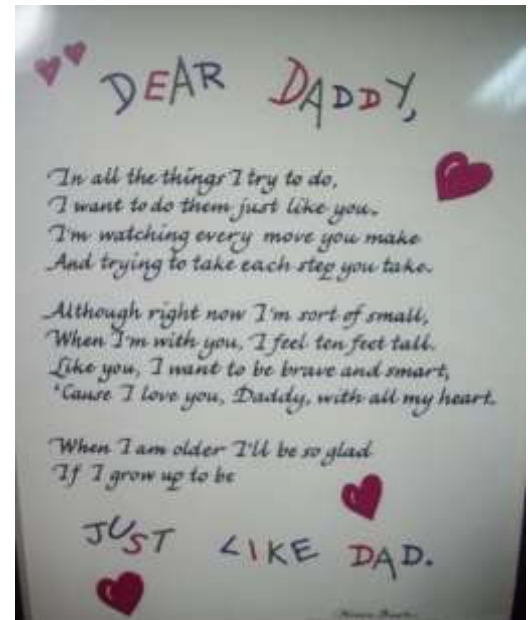 DEAR DADDY,
In all the things I try to do,
I want to do them just like you.
I'm watching every move you make
And trying to take each step you take.
Although right now I'm sort of small,
When I'm with you, I feel ten feet tall.
Like you, I want to be brave and smart,
'Cause I love you, Daddy, with all my heart.
When I am older I'll be so glad
If I grow up to be
JUST LIKE DAD.